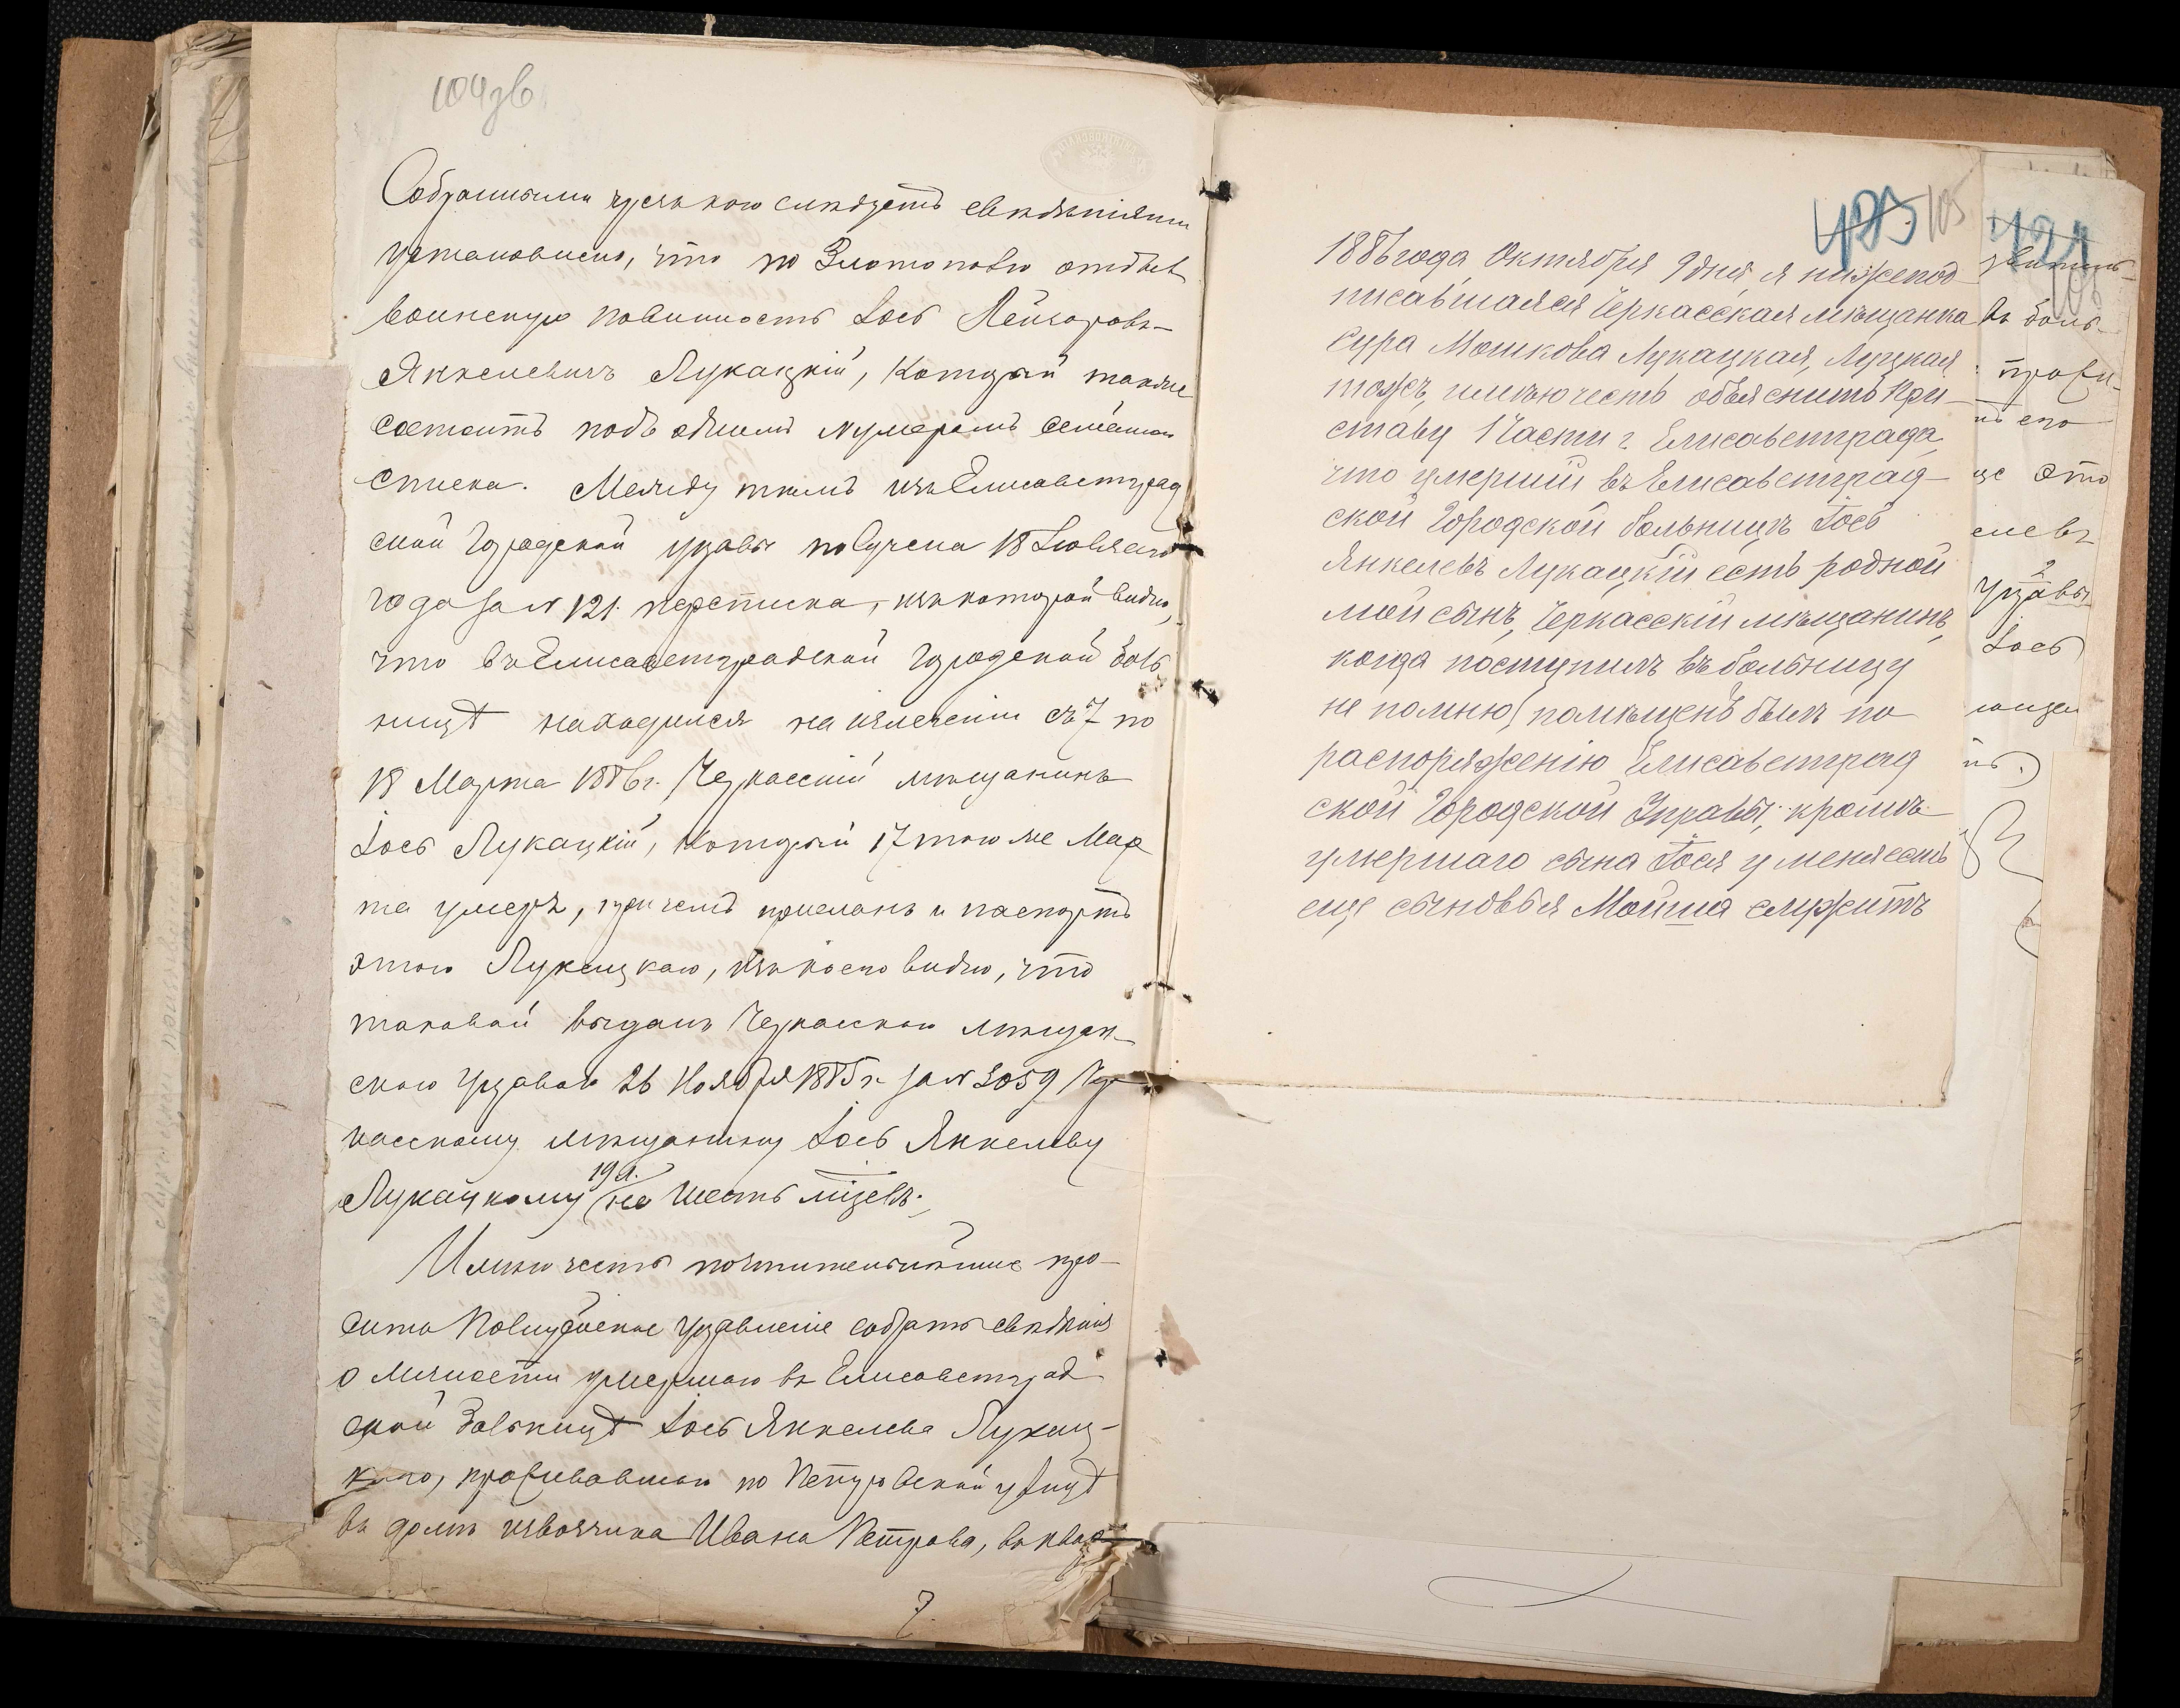 104 зв
Собранными чрезъ кого слѣдуетъ свѣдѣніями
установлено, что по Златополю отбылъ
воинскую повинность Іось Лейзоровъ-
Янкелевичъ Лукацкій, который также
состоитъ подъ однимъ нумеромъ семейнаго
списка. Между тѣмъ изъ Елисаветград
ской Городской управы получена 18 Іюля сего
года за № 121. переписка, изъ которой видно,
что въ Елисаветградской городской боль
ницѣ находился на излеченіи съ 7 по
18 Марта 1886 г. Черкасскій мѣщанинъ
Іось Лукацкій, который 17 того же Мар
та умеръ, причемъ присланъ и паспортъ
этого Лукацкаго, изъ коего видно, что
таковой выданъ Черкасскою мѣщан-
скою Управою 26 Ноября 1885 г. за № 3059 Чер
касскому мѣщанину Іосю Янкелеву
19 л.
Лукацкому на шесть мцевъ.
Имѣю честь почтительнѣйше про-
сить Полицейское Управленіе собрать свѣдѣнія
о личности умершаго въ Елисаветград
ской больницѣ Іося Янкелева Лукац-
каго, проживавшаго по Петровской улицѣ
въ домѣ извозчика Ивана Петрова, въ квар
7.
425 105
1886 года Октября 9 дня, я нижепод
писавшаяся Черкасская мѣщанка
Сура Мошкова Лукацкая, Луцкая
тожъ, имѣю честь объяснить При-
ставу 1 Части г. Елисаветграда,
что умершій въ Елисаветград-
ской Городской больницѣ Іось
Янкелевъ Лукацкій есть родной
мой сынъ, Черкасскій мѣщанинъ,
когда поступилъ въ больницу
не помню, помѣщенъ былъ по
распоряженію Елисаветград
ской Городской Управы, кромѣ
умершаго сына Іося у меня есть
еще сыновья Мойша служитъ
421
въ боль-
прожи-
его
це это
елевъ
2
Управы
Іось